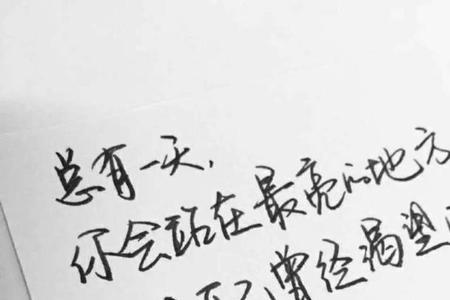 总有一天，
你会站在最亮的地方
己曾经渴望